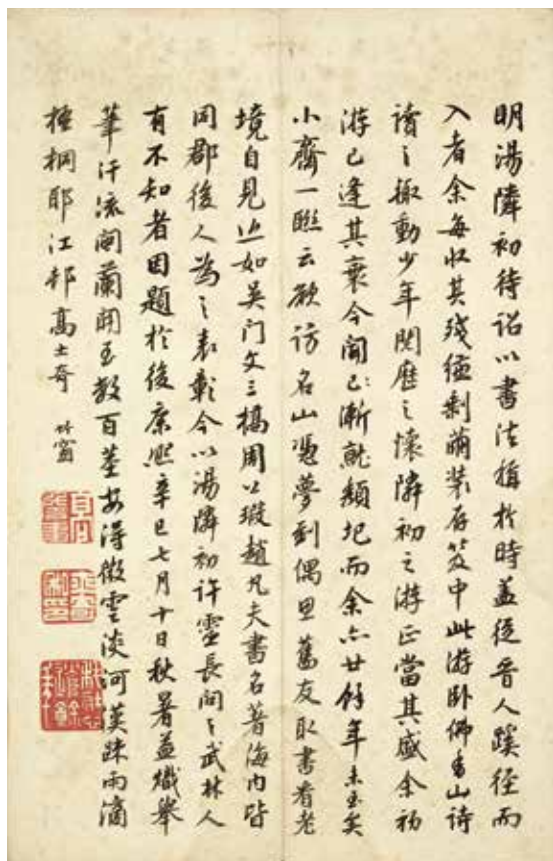 明湯隣初待詔以書法稱於時蓋從晉人蹊徑而
入者余每收其殘縑剩繭装存笈中此游卧佛香山詩
讀之輒動少年閱歷之懷隣初之游正當其盛余初
游已逢其衰今聞已漸就頹圮而余亦廿餘年未至矣
小齋一聯云欲訪名山憑夢到偶思舊友取書看老
境自見近如吳门文三橋周公瑕趙凡夫書名著海内皆
同郡後人為之表彰今以湯隣初許靈長問之武林人
有不知者因題於後康熙辛巳七月十日秋暑益熾舉
筆汗流閩蘭開至數百莖安得微雲淡河漢疎雨滴
梧桐耶江邨高士奇 竹窗